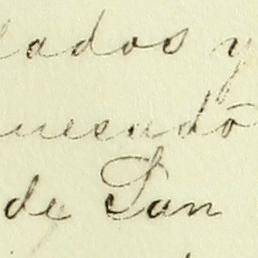 lados y
uesadó
de San